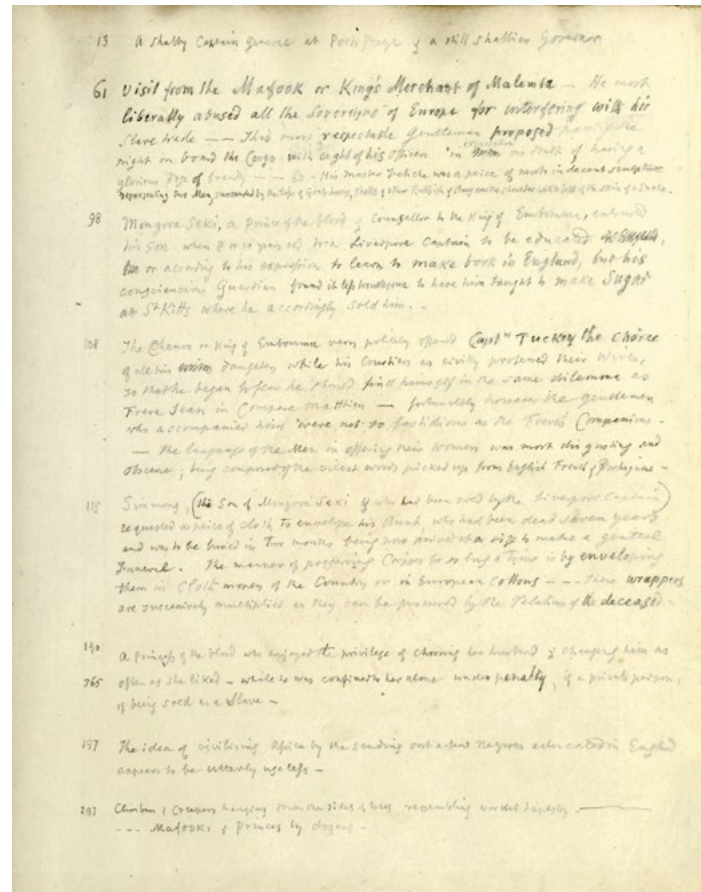 13 A shabby Captain General at Porto Praya & a still shabbier Governor
61 Visit from the Mafook or King's Merchant of Malemba — He most
liberally abused all the Sovereigns of Europe for interfering with his
Slave trade — — This most respectable Gentleman proposed passing the
night on board the Congo with eight of his officers "in expectation of having a
glorious dose of brandy — His master Fetiche was a piece of most indecent sculpture
representing two Men, surrounded by the tips of Goats horns, Shells & other Rubbish & slung over the shoulder with a belt of the skin of a Snake.
98 Mongova Seki, a Prince of the blood & Counsellor to the King of Embomma, entrusted
his Son when 8 or 10 years old to a Liverpool Captain to be educated in England,
or according to his expression to learn to make book in England, but his
conscientious Guardian found it less troublesome to have him taught to make Sugar
at St Kitts where he accordingly sold him. —
108 The Chenoo or King of Embomma very politely offered Captn Tuckey the choice
of all his daughters while his Courtiers as civilly proffered their Wives,
so that he began to fear he should find himself in the same dilemma as
Frere Jean in Compere Matthieu — fortunately however the gentlemen
who accompanied him were not so fastidious as the Frere's Companions. —
— The language of the Men in offering their Women was most disgusting and
obscene; being composed of the vilest words picked up from English French & Portuguese —
115 Simmons, (the Son of Mongova Seki & who had been sold by the Liverpool Captain)
requested a piece of cloth to envelope his Aunt, who had been dead seven years
and was to be buried in Two months being now arrived at a size to make a genteel
Funeral. The manner of preserving Corpses for so long a time is by enveloping
them in Cloth money of the Country or in European Cottons — — — These wrappers
are successively multiplied as they can be procured by the relations of the deceased —
190 A Princess of the blood who enjoyed the privilege of choosing her husband & changing him as
365 often as she liked — while he was confined to her alone under penalty, if a private person,
of being sold as a Slave —
197 The idea of civilising Africa by the sending out a few Negroes educated in England
appears to be utterly useless —
293 Climbers & Creepers hanging down the sides of trees resembling worked tapestry. —
- - - Mafooks & Princes by dozens —